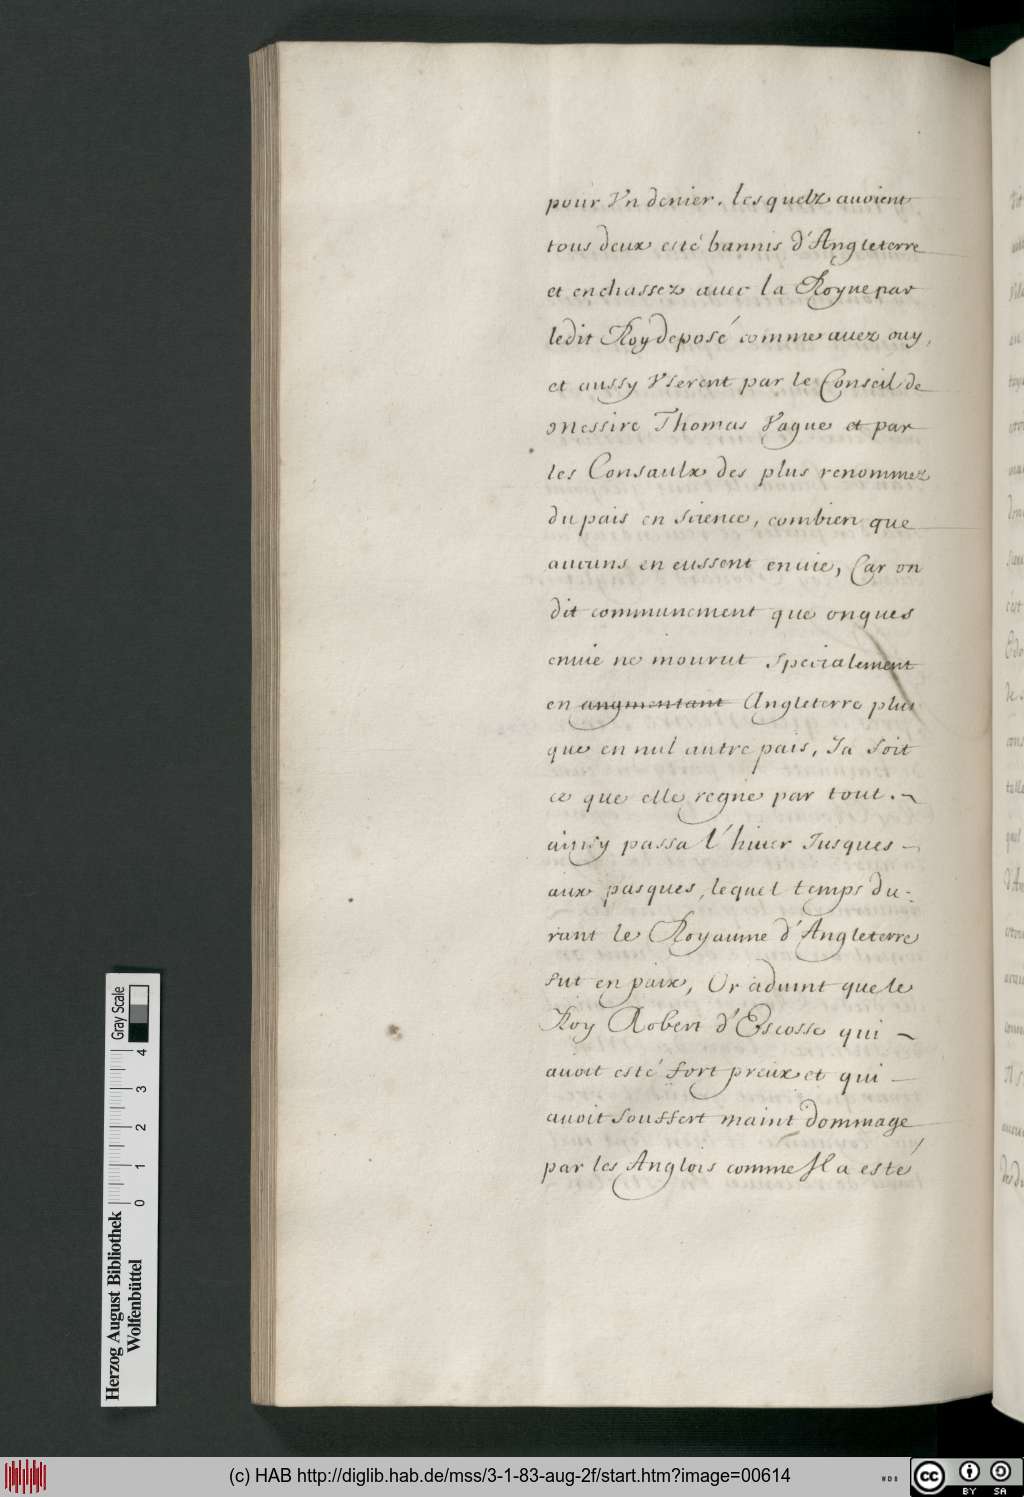 pour Vn denier. lesquelz auoient
tous deux esté bannis d'Angleterre
et enchassez auec la Royne par
ledit Roy deposé comme auez ouy,
et aussy Vserent par le Conseil de
Messire Thomas Vague et par
les Consaulx des plus renommez
du pais en Science, combien que
aucuns en eussent enuie, Car on
dit communement que onques
enuie ne mourut specialement
en augmentant Angleterre plus
que en nul autre pais, Ja soit
ce que elle regne par tout.
ainsy passa l'hiuer Jusques
aux pasques, lequel temps du-
rant le Royaume d'Angleterre
fut en paix, Or aduint que le
Roy Robert d'Escosse qui
auoit esté fort preux et qui
auoit souffert maint dommage
par les Anglois comme Il a esté,
Gray Scale
0 1 2 3 4
Herzog August Bibliothek
Wolfenbüttel
(c) HAB http://diglib.hab.de/mss/3-1-83-aug-2f/start.htm?image=00614
WDB
cc BY SA